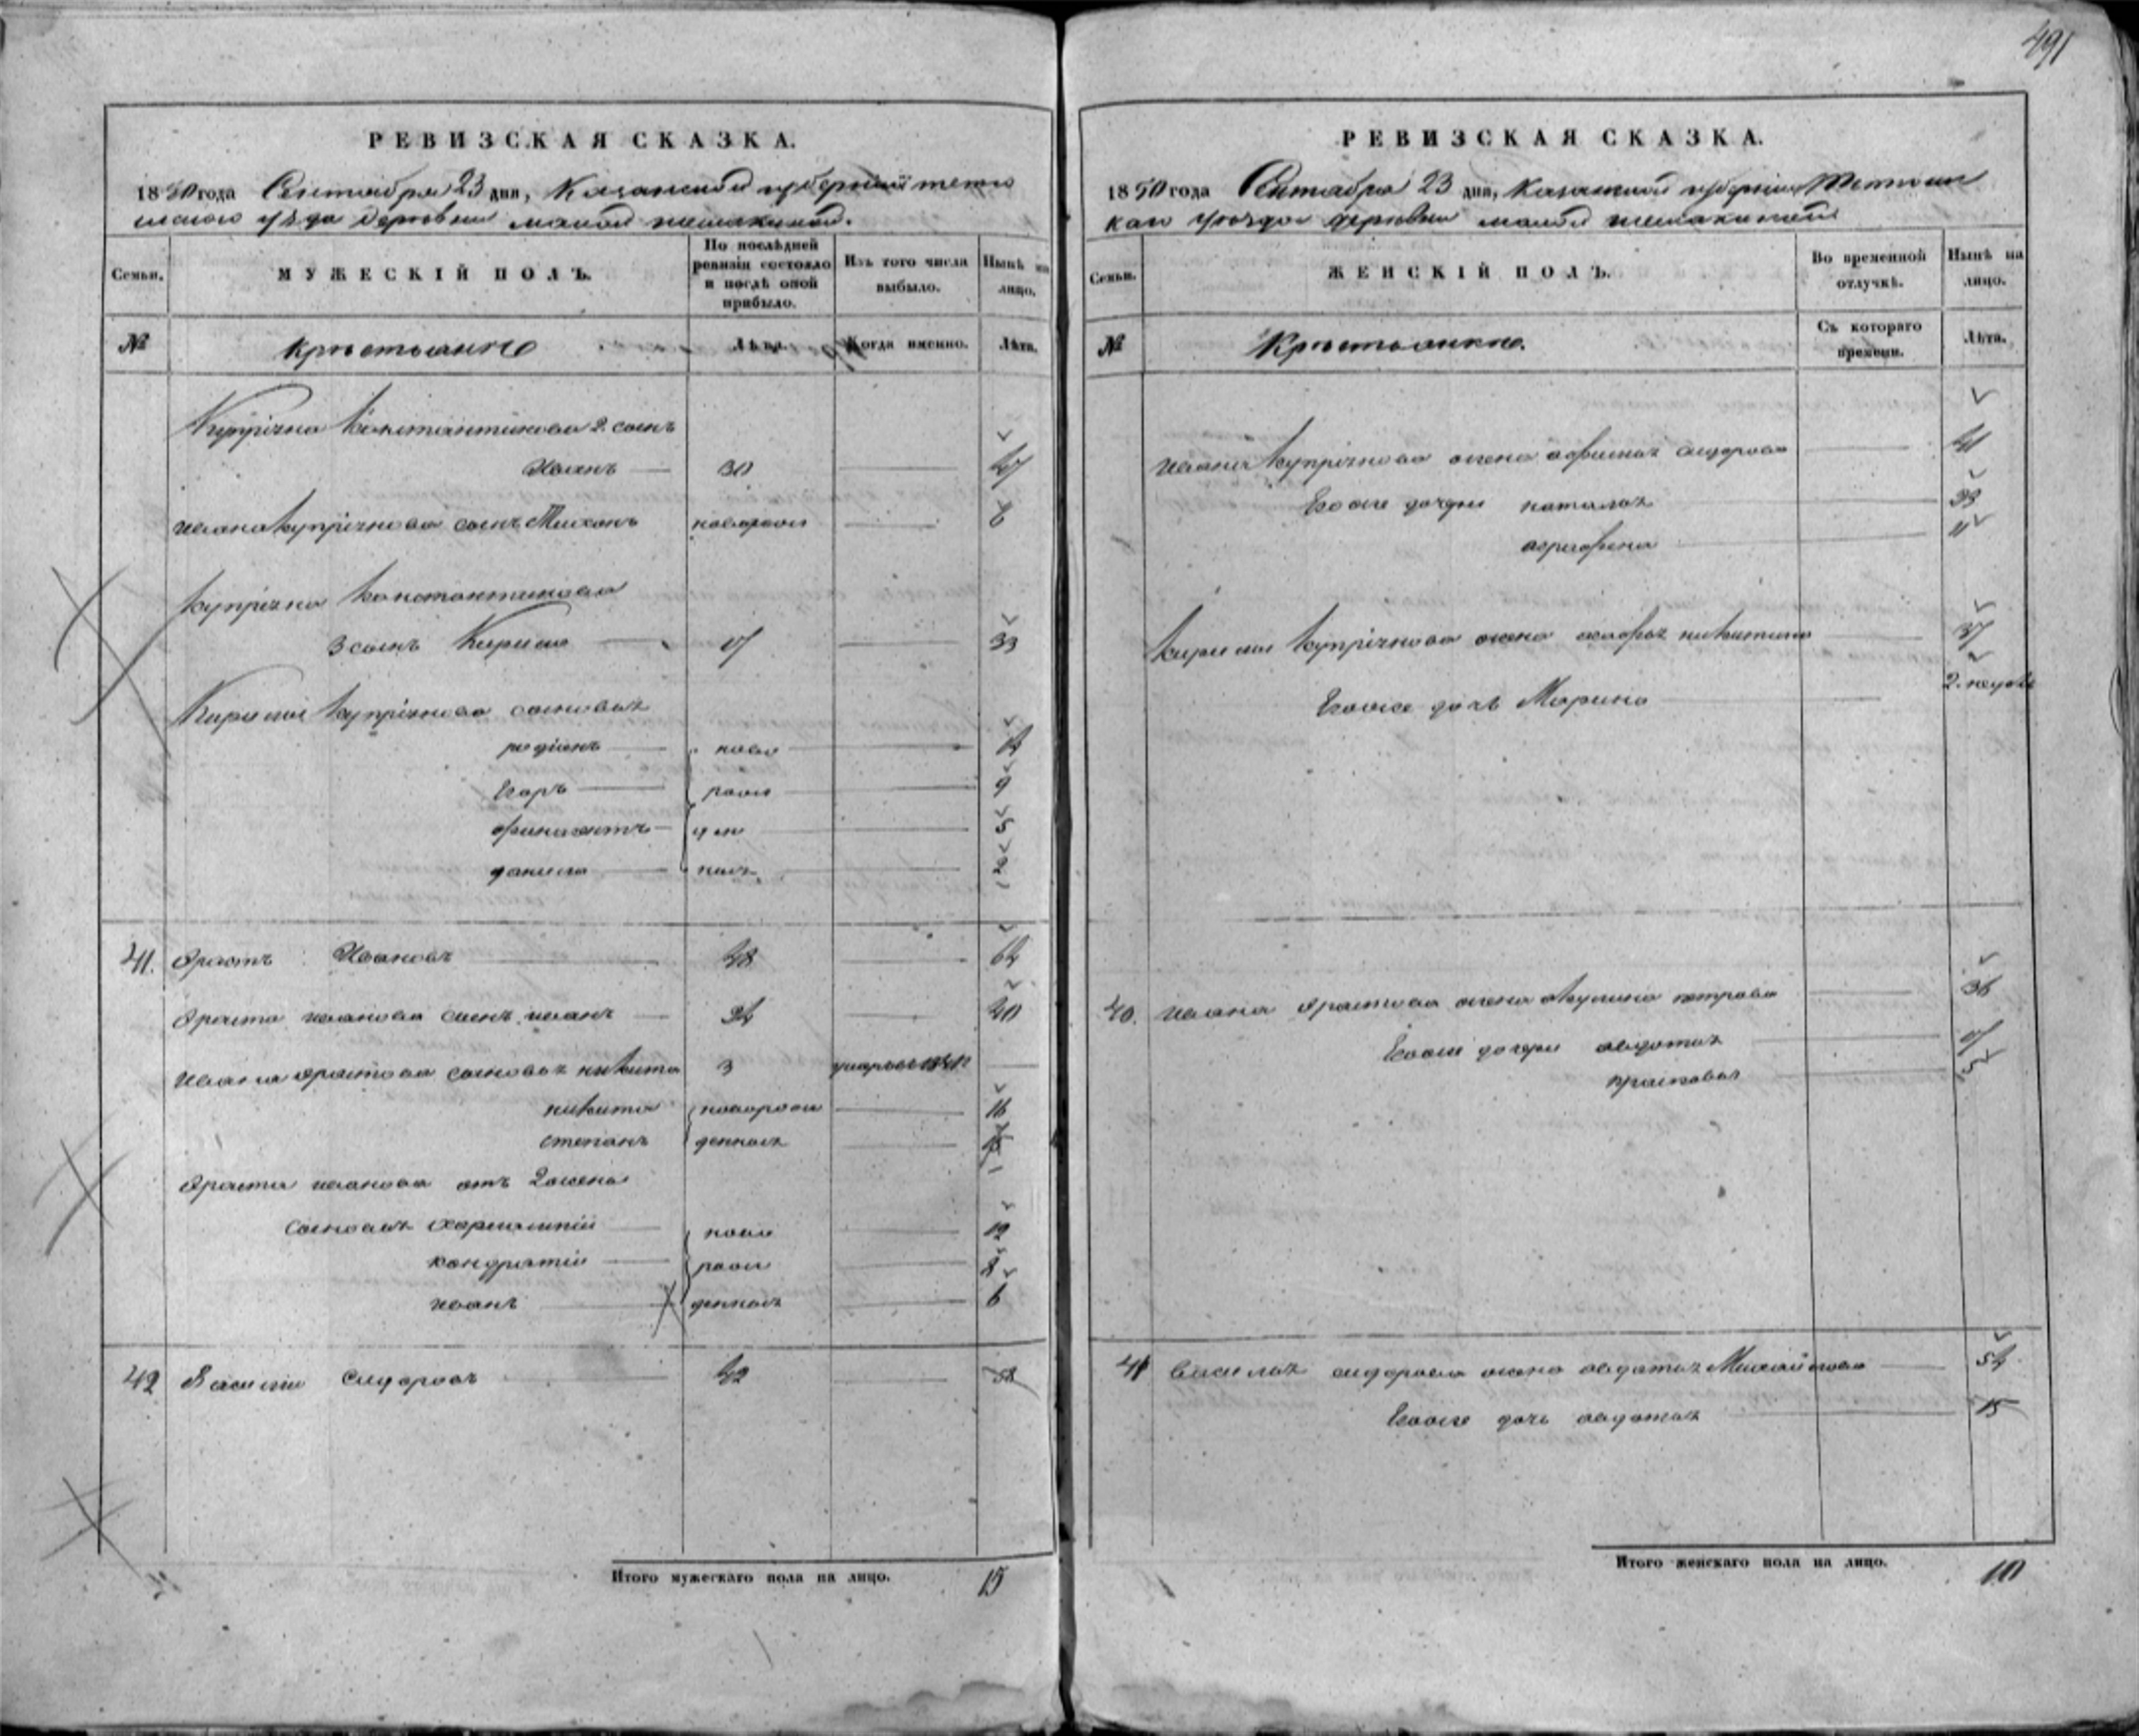 491
РЕВИЗСКАЯ СКАЗКА.
1850 года Сентября 23 дня, Казанской губернии тетю
шскаго уѣзда деревни малой шемякиной.
Семьи.
МУЖЕСКІЙ ПОЛЪ.
По послѣдней ревизіи состояло и послѣ оной прибыло.
Изъ того числа выбыло.
Нынѣ на лицо.
№
крѣстьяннѣ
Лѣта.
Когда именно.
Лѣта.
Купріяна Константинова 2. сынъ
Иванъ 30 47
ивана Купріянова сынъ новорож 6
Купріяна Константинова
3 сынъ Кирила 17 33
Кирилы Купріянова сыновья
родіонъ ново 14
Егоръ рож 9
ден 5
данила ныя 3
41. Ерастъ Ивановъ 48 64
Ераста иванова сынъ иванъ 24 40
ивана ерастова сыновья никита 3
никита новорож 16
степанъ денныя
Ераста иванова отъ 2 жены
сыновья харлампій ново 12
кондратій рож 8
иванъ денныя 6
42 Василій Сидоровъ 42 58
Итого мужескаго пола на лицо. 15
РЕВИЗСКАЯ СКАЗКА.
1850 года Сентября 23 дня, Казанской губерніи Тетюшс
каго уѣзда деревни малой шемякиной
Семьи.
ЖЕНСКІЙ ПОЛЪ.
Во временной отлучкѣ.
Нынѣ на лицо.
№
Крѣстьянкѣ.
Съ котораго времени.
Лѣта.
ивана Купріянова жена афимья сидорова 41
Егоже дочери наталья
аграфена 11
Кирилы Купріянова жена никитина 37
Егоже дочь Марина 2. неде
40. ивана Ерастова жена акулина петрова 36
Егоже дочери авдотья
прасковья
41 Василья сидорова жена авдотья Михайлова 54
Егоже дочь авдотья 15
Итого женскаго пола на лицо. 10